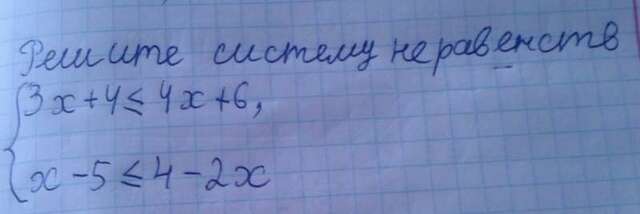 Решите систему неравенств
3x+4≤4x+6,
x-5≤4-2x